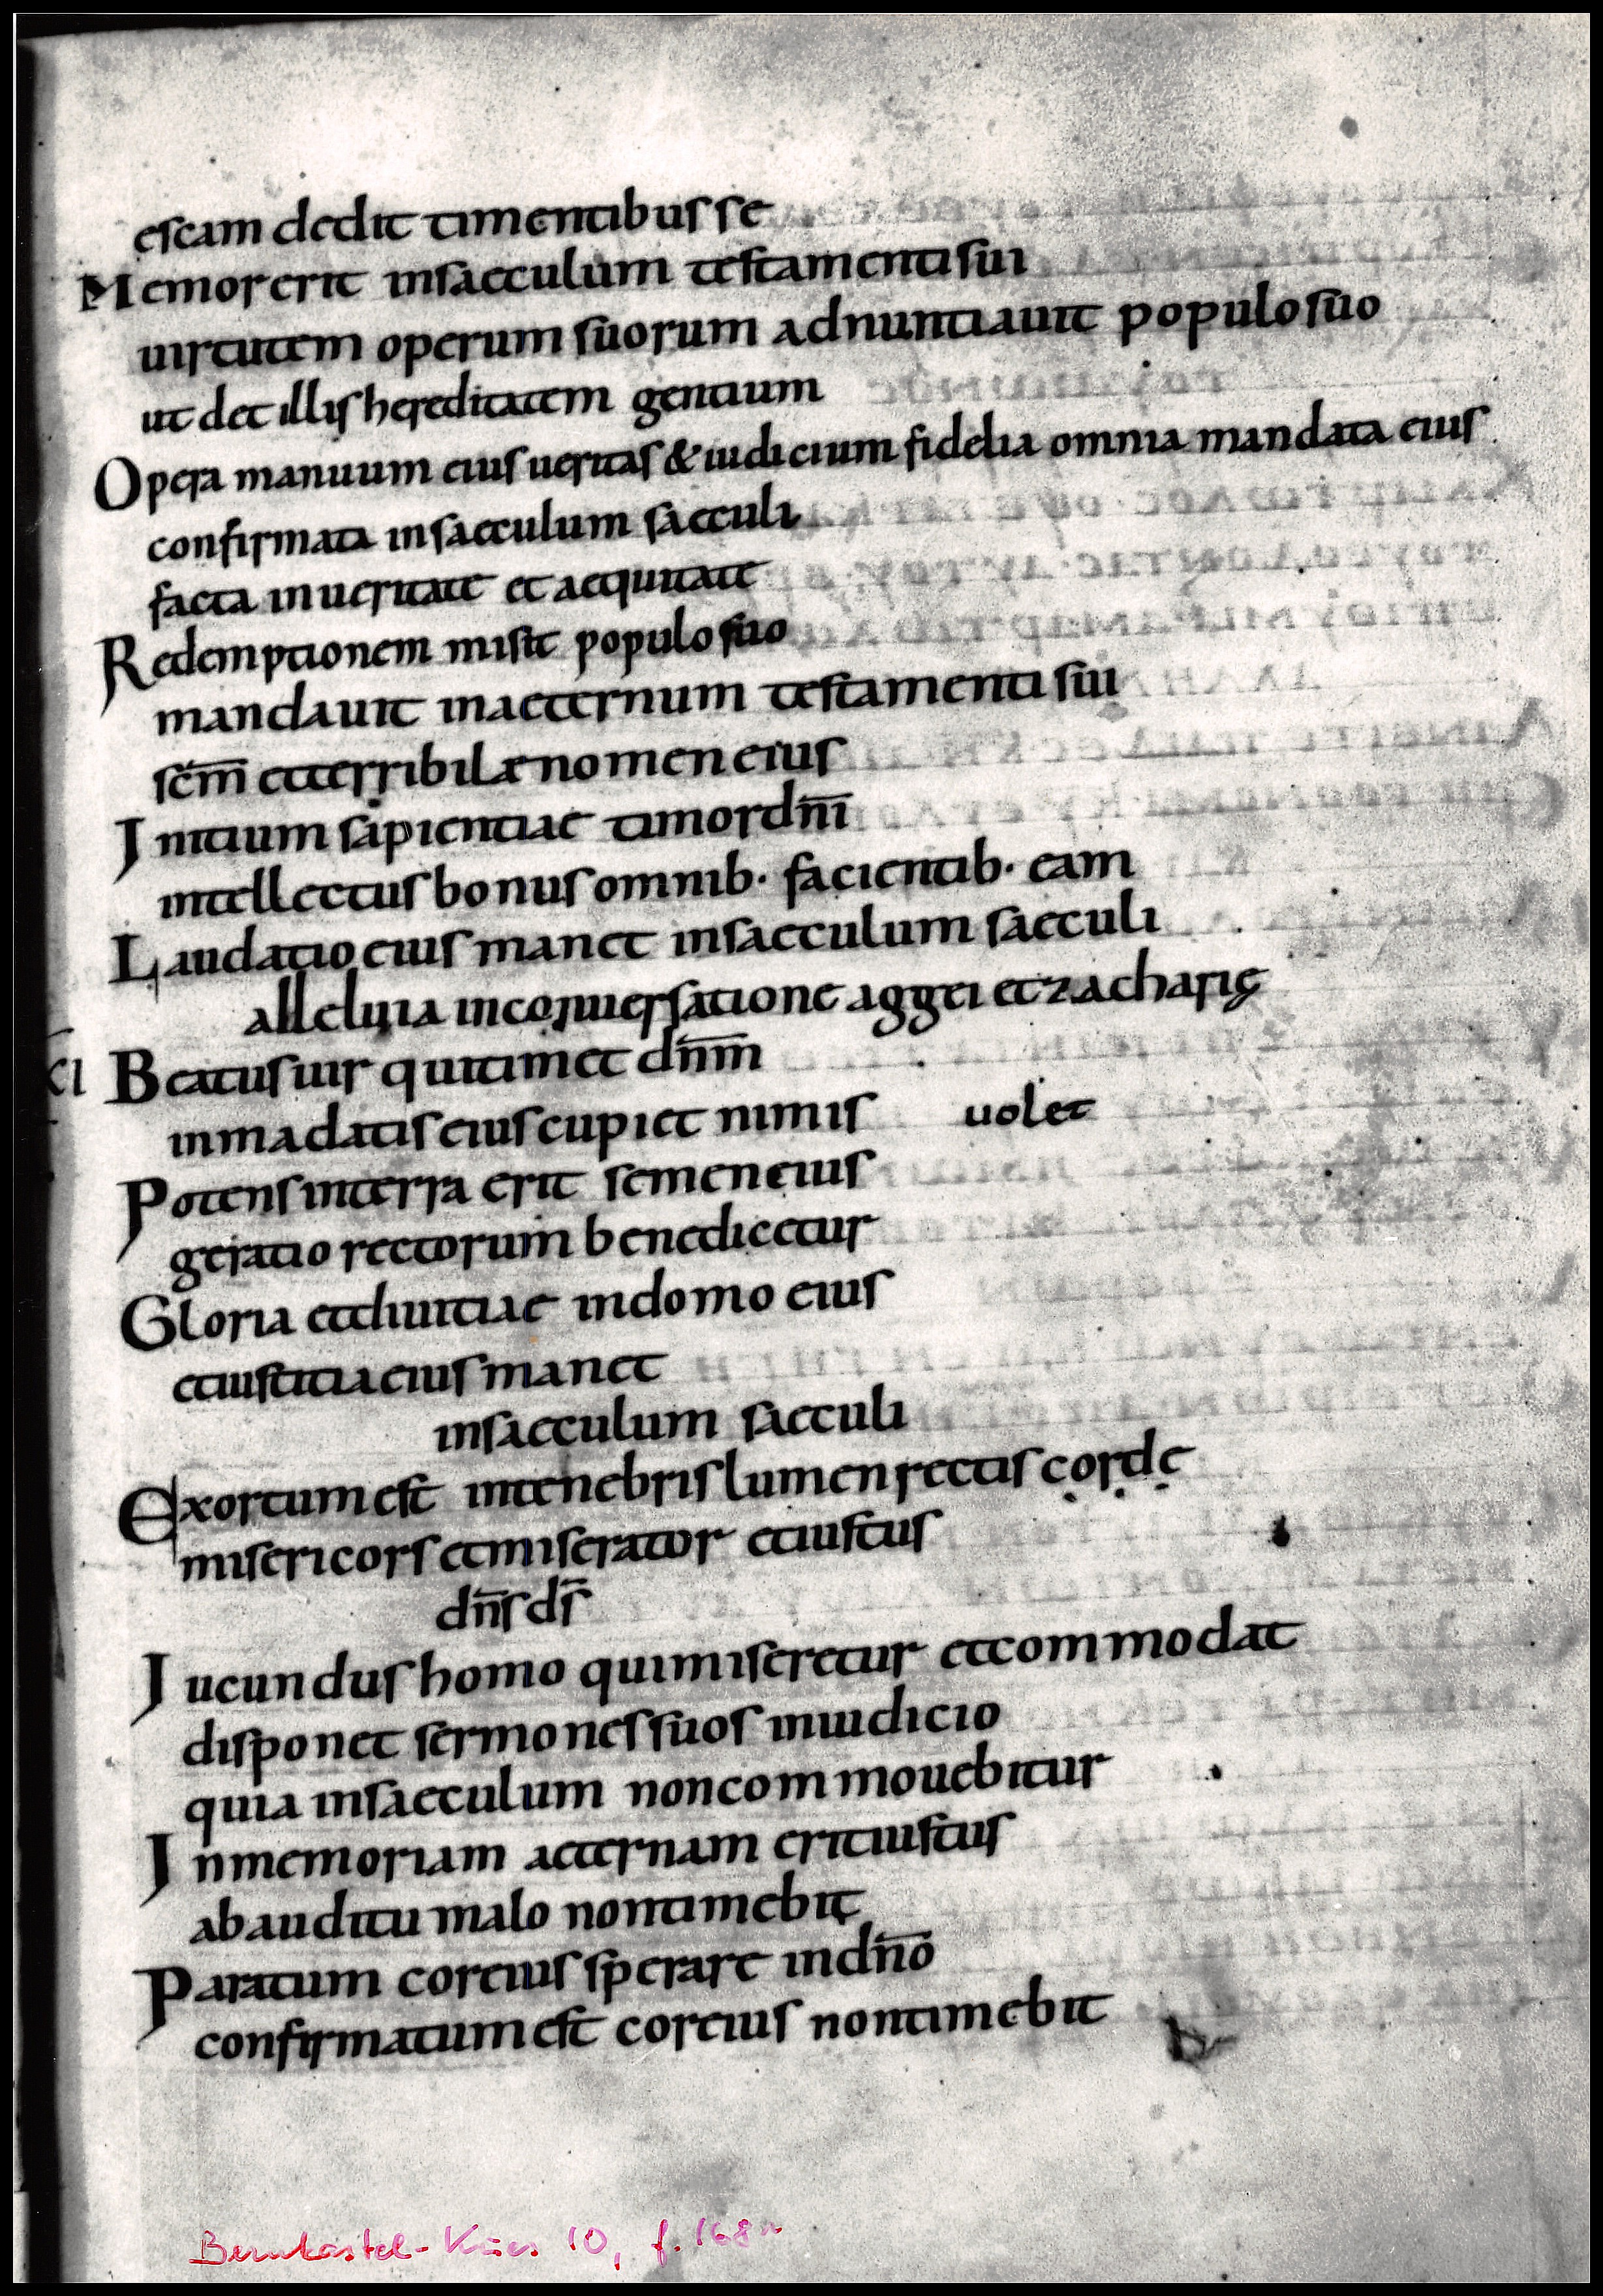 escam dedit timentibus se
Memor erit insaeculum testamenti sui
uirtutem operum suorum adnuntiauit populo suo
ut det illis hereditatem gentium
Opera manuum eius ueritas & iudicium fidelia omnia mandata eius
confirmata insaeculum saeculi
facta inueritate et aequitate
Redemptionem misit populo suo
mandauit inaeternum testamenti sui
scm̄ etterribilæ nomen eius
Initium sapientiae timor dnī
intellectus bonus omnib· facientib· eam
Laudatio eius manet insaeculum saeculi
alleluia inconuersatione aggei et zacharię
CXI Beatus uir quitimet dnm̄
inmadatis eius cupiet nimis uolet
Potens interra erit semen eius
geratio rectorum benedicetur
Gloria etdiuitiae indomo eius
etiustitia eius manet
insaeculum saeculi
Exortum est intenebris lumen rectis corde
misericors etmiserator etiustus
dns̄ ds̄
Iucundus homo quimiseretur etcommodat
disponet sermones suos iniudicio
quia insaeculum noncommouebitur
Inmemoriam aeternam eritiustus
abauditu malo nontimebit
Paratum coreius sperare indnō
confirmatum est coreius nontimebit
Bernkastel-Kues 10, f. 168r